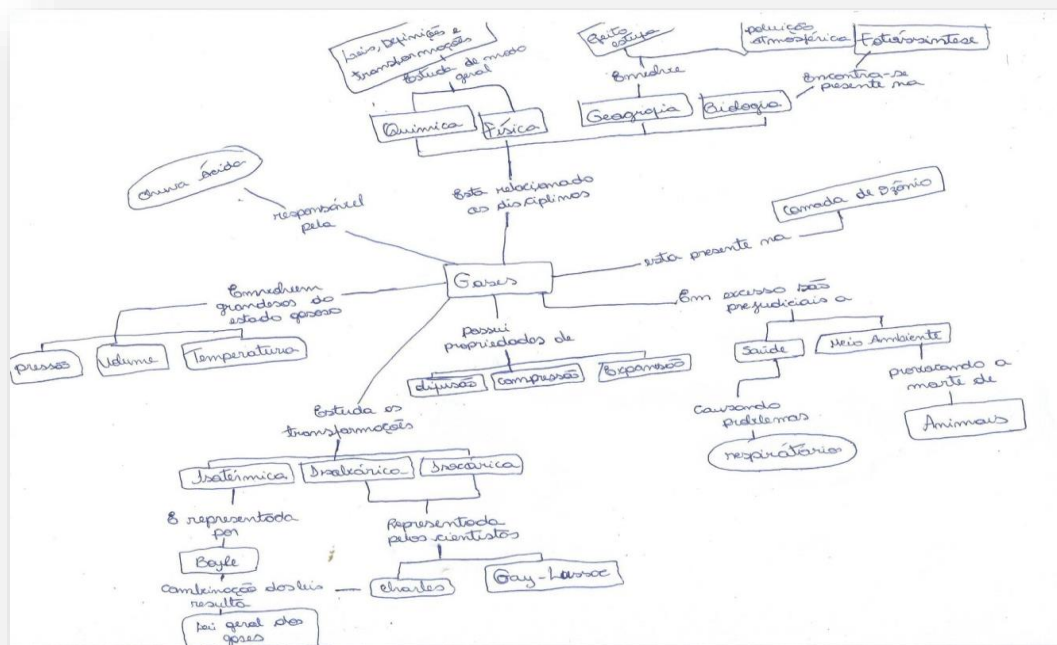 Leis, Definições e
transformações
Estuda de modo
geral
Química
Física
Efeito
estufa
Envolve
Geografia
poluição
atmosférica
Fotossíntese
Encontra-se
presente na
Biologia
Está relacionado
as disciplinas
chuva ácida
responsável
pela
Gases
esta presente na
camada de Ozônio
Envolvem
grandesas do
estado gasoso
pressão
Volume
Temperatura
Possui
propriedades de
difusão
compressão
Expansão
Em excesso são
prejudiciais a
Saúde
Meio Ambiente
Causando
problemas
respiratórios
provocando a
morte de
Animais
Estuda as
transformações
Isotérmica
Isobárica
Isocórica
É representada
por
Boyle
Representada
pelos cientistas
Charles
Gay-Lussac
combinação das leis
resulta
Lei geral dos
gases